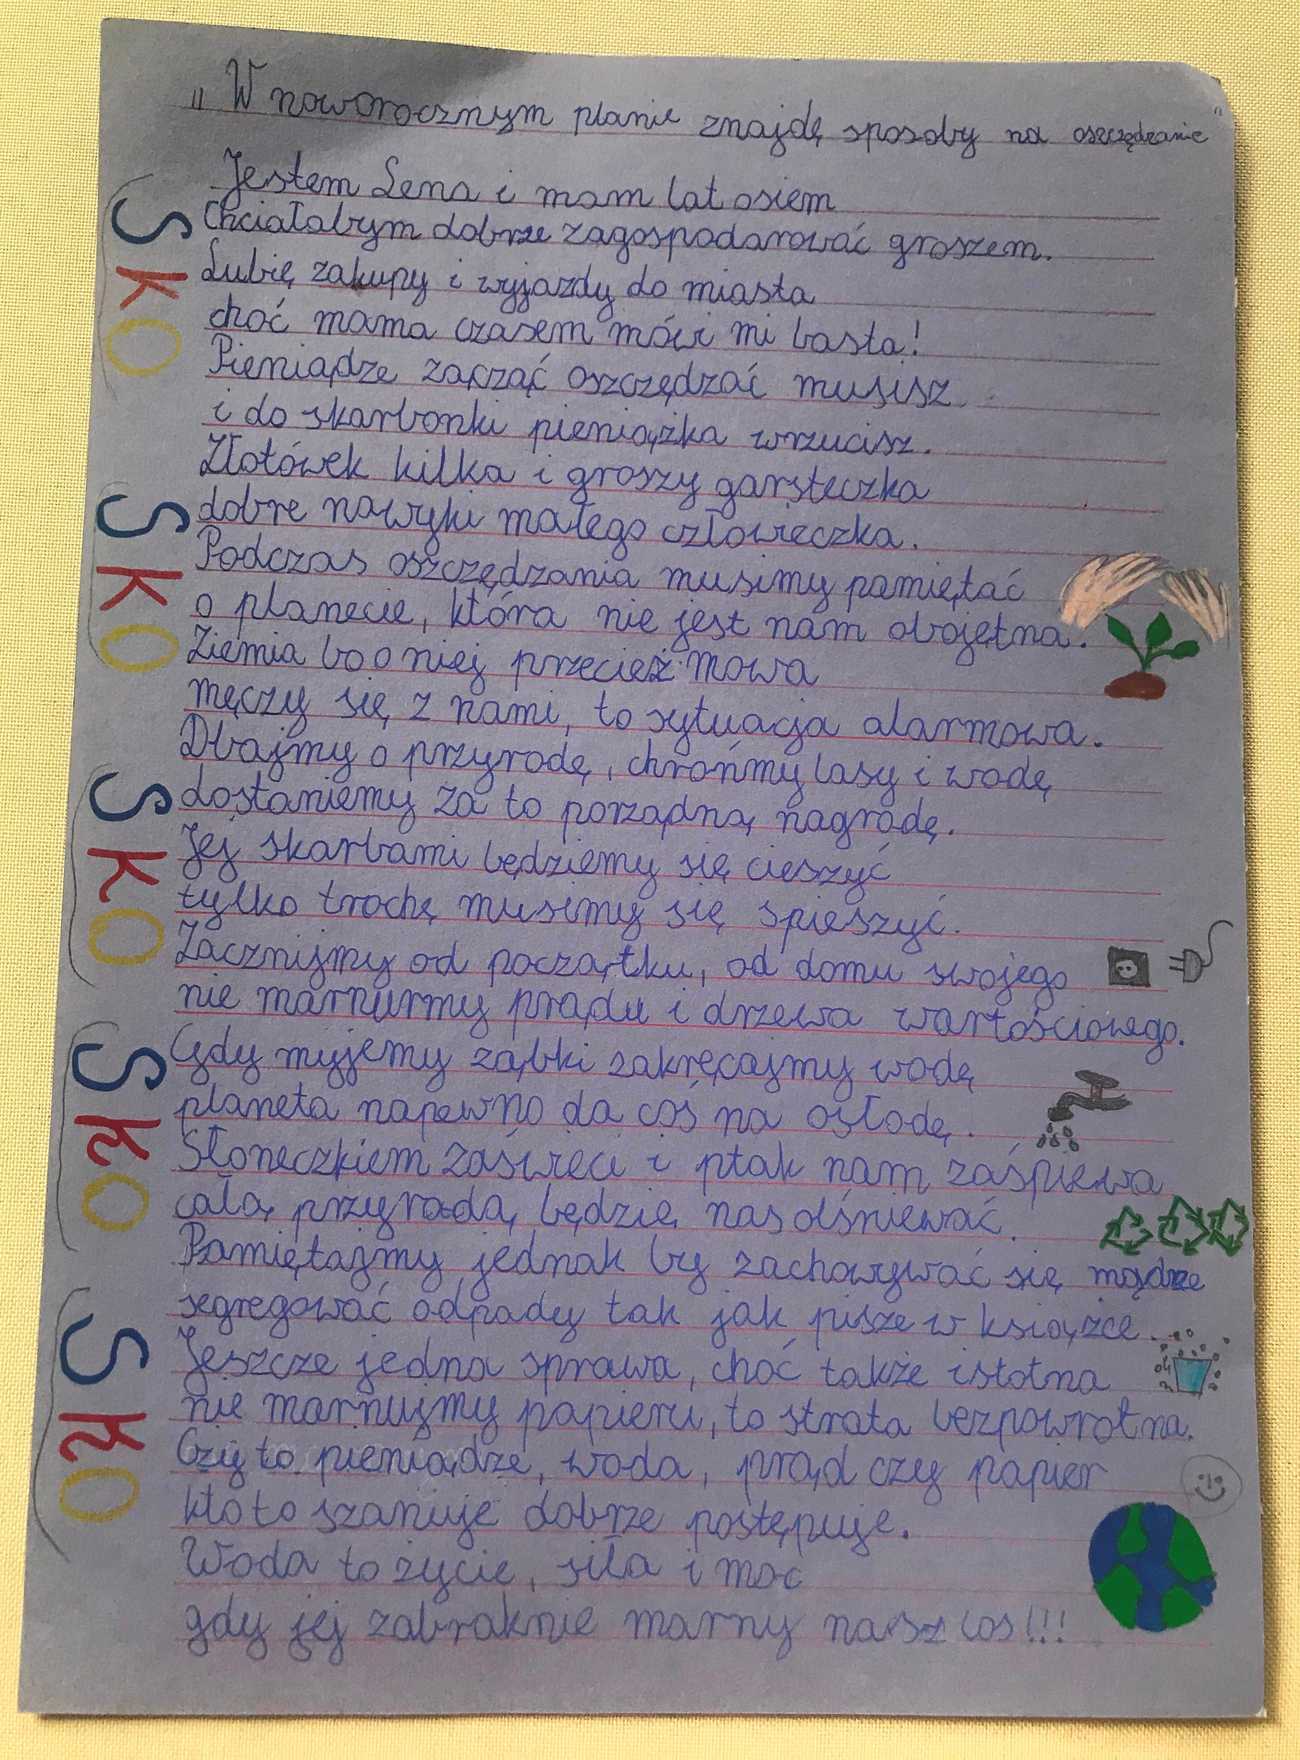 „W noworocznym planie znajdę sposoby na oszczędzanie"
Jestem Lena i mam lat osiem
Chciałabym dobrze zagospodarować groszem.
Lubię zakupy i wyjazdy do miasta
choć mama czasem mówi mi basta!
Pieniądze zacząć oszczędzać musisz
i do skarbonki pieniążka wrzucisz.
Złotówek kilka i groszy garsteczka
dobre nawyki małego człowieczka.
Podczas oszczędzania musimy pamiętać
o planecie, która nie jest nam obojętna.
Ziemia bo o niej przecież mowa
męczy się z nami, to sytuacja alarmowa.
Dbajmy o przyrodę, chrońmy lasy i wodę
dostaniemy za to porządną nagrodę.
Jej skarbami będziemy się cieszyć
tylko trochę musimy się spieszyć.
Zacznijmy od początku, od domu swojego
nie marnujmy prądu i drzewa wartościowego.
Gdy myjemy ząbki zakręcajmy wodę
planeta napewno da coś na osłodę.
Słoneczkiem zaświeci i ptak nam zaśpiewa
całą przyrodą będzie nas olśniewać.
Pamiętajmy jednak by zachowywać się mądrze
segregować odpady tak jak pisze w książce.
Jeszcze jedna sprawa, choć także istotna
nie marnujmy papieru, to strata bezpowrotna.
Czy to pieniądze, woda, prąd czy papier
kto to szanuje dobrze postępuje.
Woda to życie, siła i moc
gdy jej zabraknie marny nasz los!!!
SKO
SKO
SKO
SKO
SKO